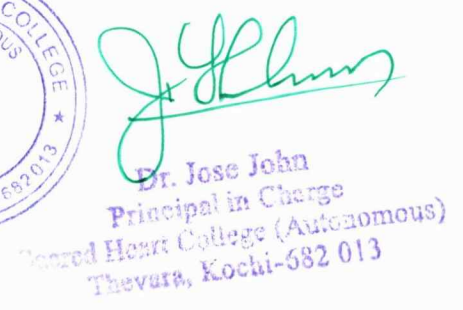 COLLEGE ★
682013
Dr. Jose John
Principal in Charge
Sacred Heart College (Autonomous)
Thevara, Kochi-682 013